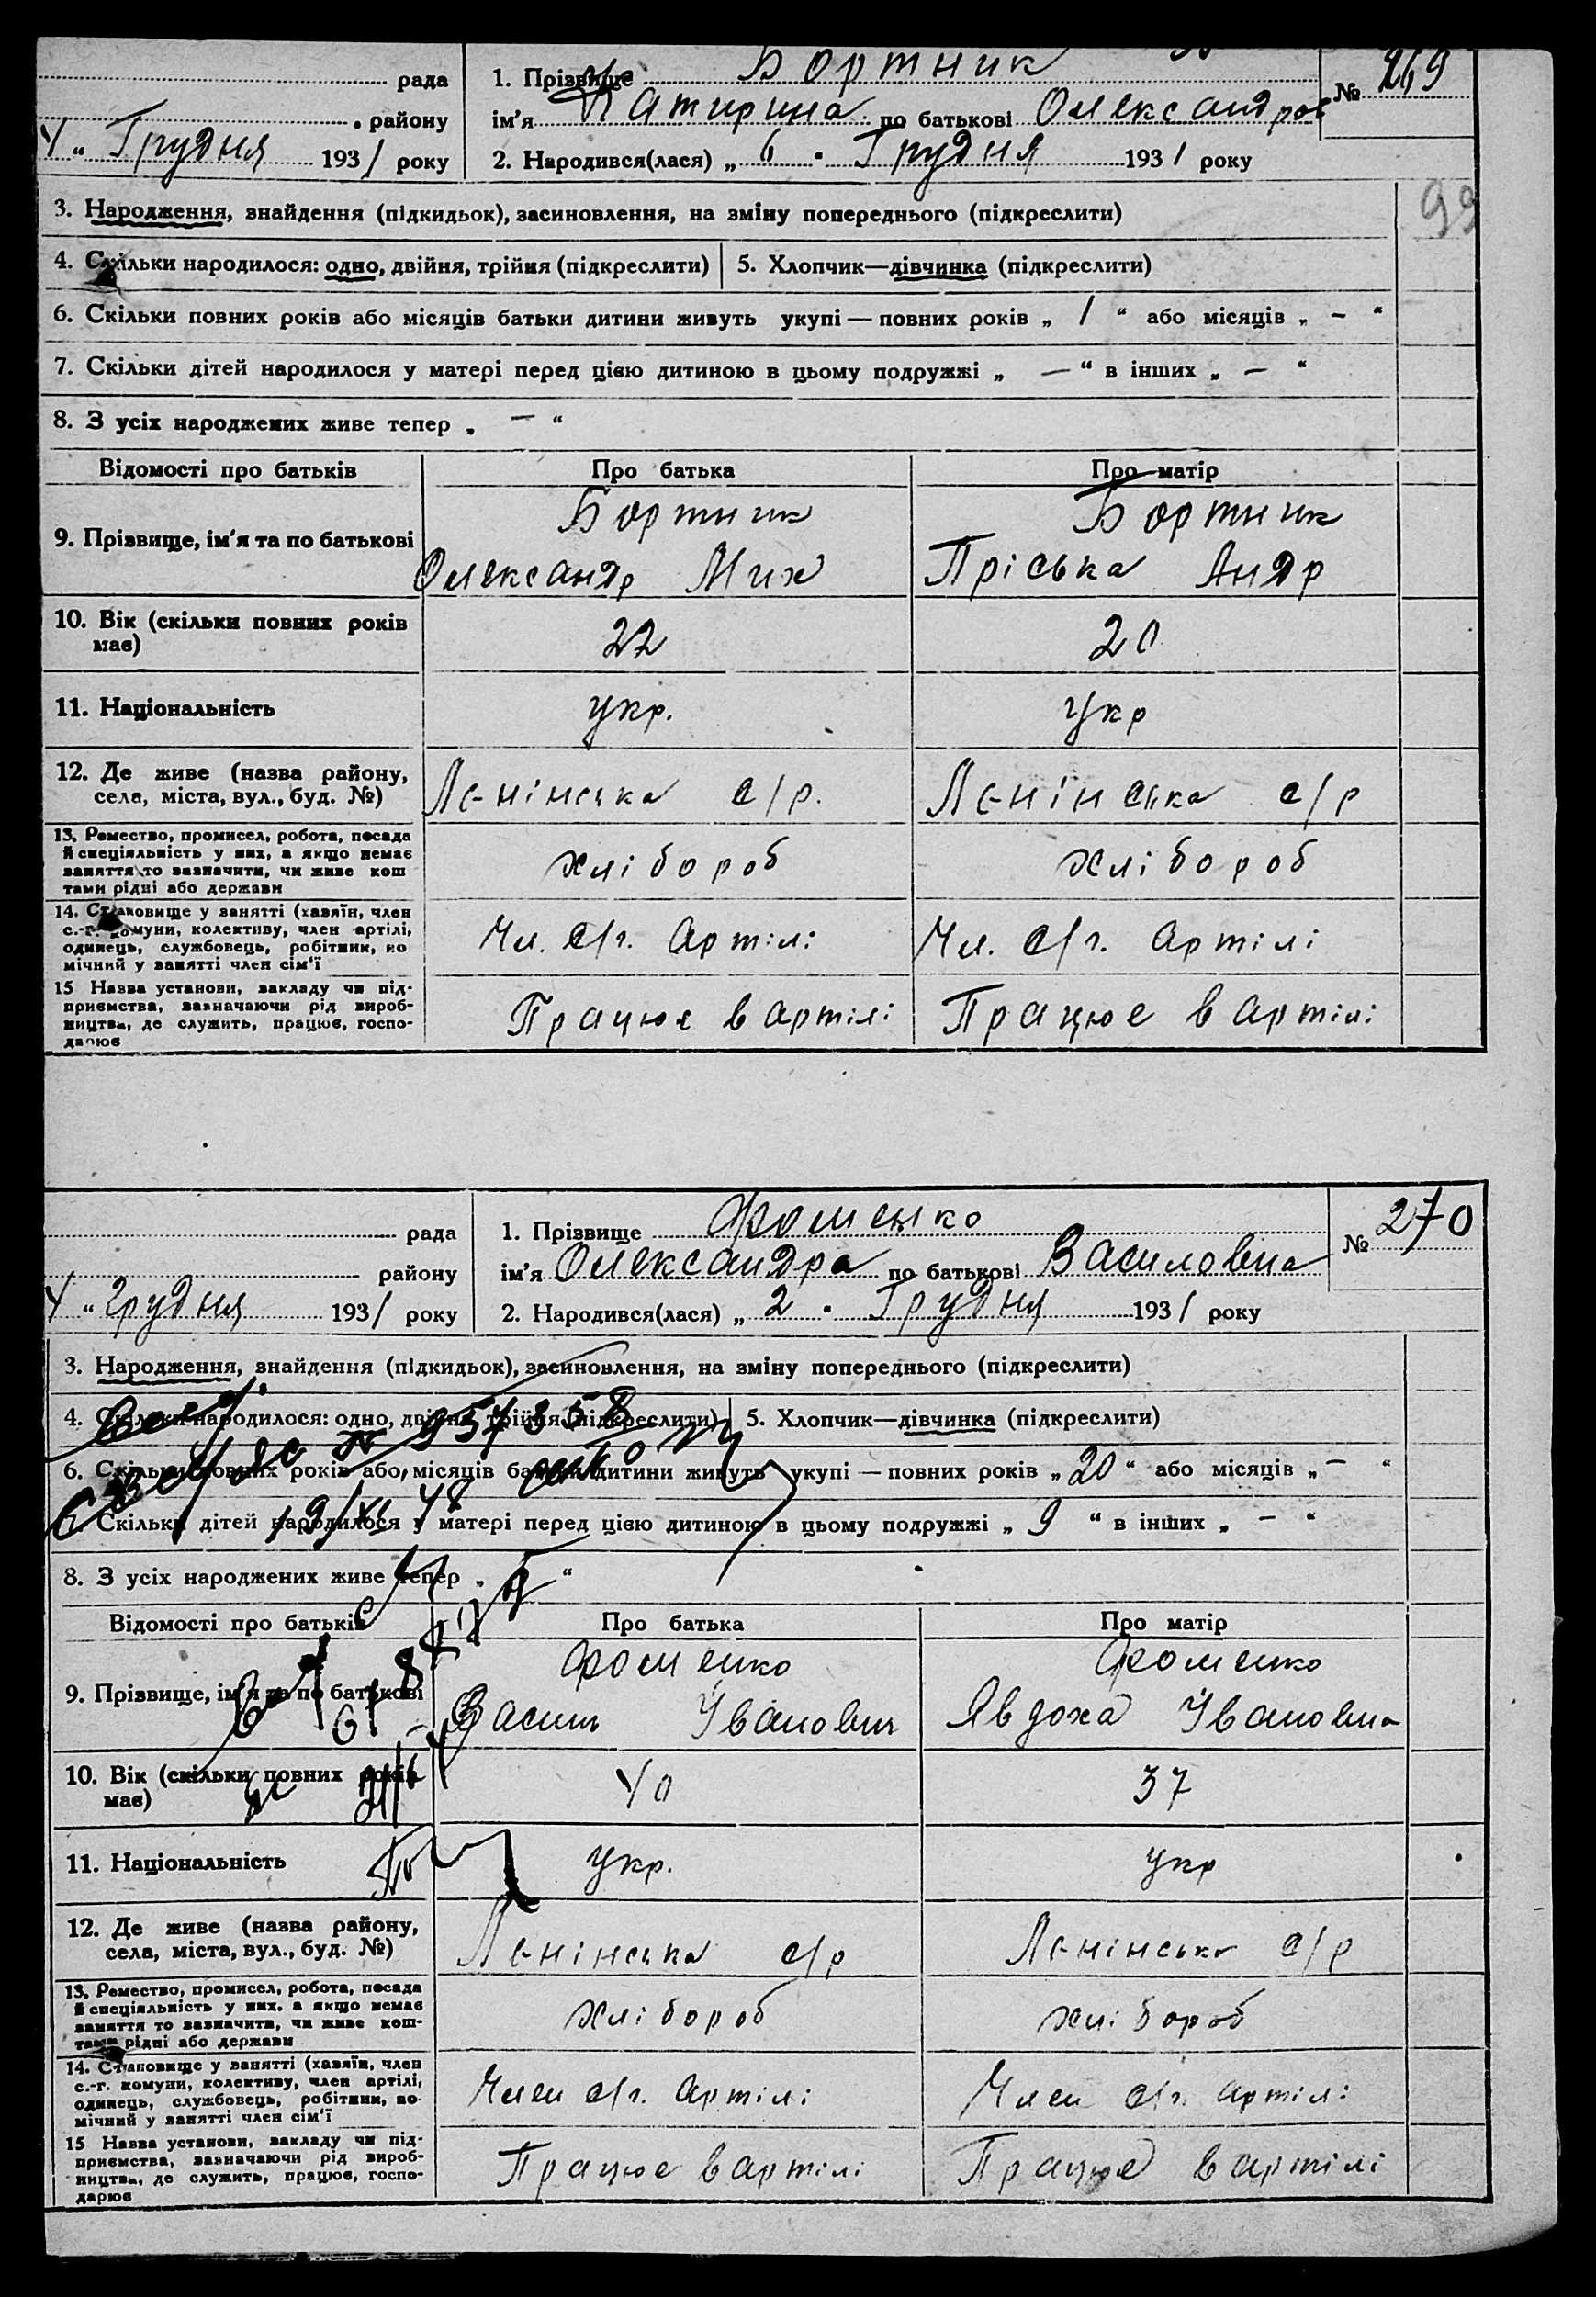 рада
1. Прізвище Бортник
№ 269
району
ім'я Катирина по батькові Олександров
" Грудня 1931 року
2. Народився(лася) „ 6 " Грудня 1931 року
99
3. Народження, знайдення (підкидьок), засиновлення, на зміну попереднього (підкреслити)
4. Скільки народилося: одно, двійня, трійня (підкреслити)
5. Хлопчик—дівчинка (підкреслити)
6. Скільки повних років або місяців батьки дитини живуть укупі — повних років „ 1 “ або місяців „ – “
7. Скільки дітей народилося у матері перед цією дитиною в цьому подружжі „ — “ в інших „ – “
8. З усіх народжених живе тепер „ — “
Відомості про батьків
Про батька
Про матір
9. Прізвище, ім'я та по батькові
Бортник
Олександр Мих
Бортник
Пріська Андр
10. Вік (скільки повних років
має)
22
20
11. Національність
укр.
укр
12. Де живе (назва району,
села, міста, вул., буд. №)
Ленінська с/р.
Ленінська с/р
13. Ремество, промисел, робота, посада
й спеціяльність у них, а якщо немає
заняття то зазначити, чи живе кош
тами рідні або держави
хлібороб
хлібороб
14. Становище у занятті (хазяїн, член
с.-г. комуни, колективу, член артілі,
одинець, службовець, робітник, по
мічний у занятті член сім'ї
Чл. с/г. артілі
Чл. с/г. артілі
15 Назва установи, закладу чи під-
приємства, зазначаючи рід вироб-
ництва, де служить, працює, госпо-
дарює
Працює в артілі
Працює в артілі
рада
1. Прізвище Фоменко
№ 270
району
ім'я Олександра по батькові Василовна
" Грудня 1931 року
2. Народився(лася) „ 2 " Грудня 1931 року
3. Народження, знайдення (підкидьок), засиновлення, на зміну попереднього (підкреслити)
4. Скільки народилося: одно, двійня, трійня (підкреслити)
5. Хлопчик—дівчинка (підкреслити)
6. Скільки повних років або місяців батьки дитини живуть укупі — повних років „ 20 “ або місяців „ – “
7. Скільки дітей народилося у матері перед цією дитиною в цьому подружжі „ 9 “ в інших „ – “
8. З усіх народжених живе тепер „ “
Відомості про батьків
Про батька
Про матір
9. Прізвище, ім'я та по батькові
Фоменко
Василь Іванович
Фоменко
Явдоха Івановна
10. Вік (скільки повних років
має)
40
37
11. Національність
укр.
укр
12. Де живе (назва району,
села, міста, вул., буд. №)
Ленінська с/р
Ленінська с/р
13. Ремество, промисел, робота, посада
й спеціяльність у них, а якщо немає
заняття то зазначити, чи живе кош-
тами рідні або держави
хлібороб
хлібороб
14. Становище у занятті (хазяїн, член
с.-г. комуни, колективу, член артілі,
одинець, службовець, робітник, по-
мічний у занятті член сім'ї
Член с/г. артілі
Член с/г. артілі
15 Назва установи, закладу чи під-
приємства, зазначаючи рід вироб-
ництва, де служить, працює, госпо-
дарює
Працює в артілі
Працює в артілі